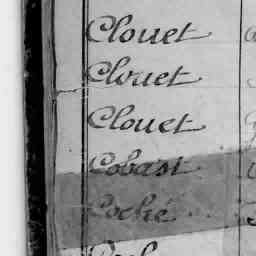 Clouet
Clouet
Clouet
Cobast
Coché